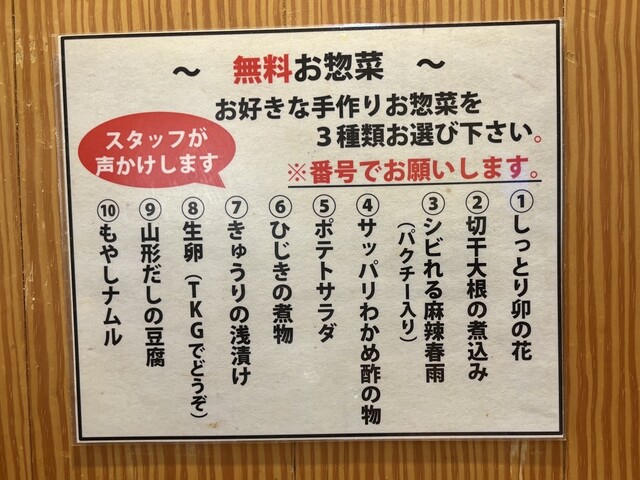 ～ 無料お惣菜 ～
お好きな手作りお惣菜を
３種類お選び下さい。
※番号でお願いします。
スタッフが
声かけします
①しっとり卯の花
②切干大根の煮込み
③シビれる麻辣春雨
（パクチー入り）
④サッパリわかめ酢の物
⑤ポテトサラダ
⑥ひじきの煮物
⑦きゅうりの浅漬け
⑧生卵（TKGでどうぞ）
⑨山形だしの豆腐
⑩もやしナムル